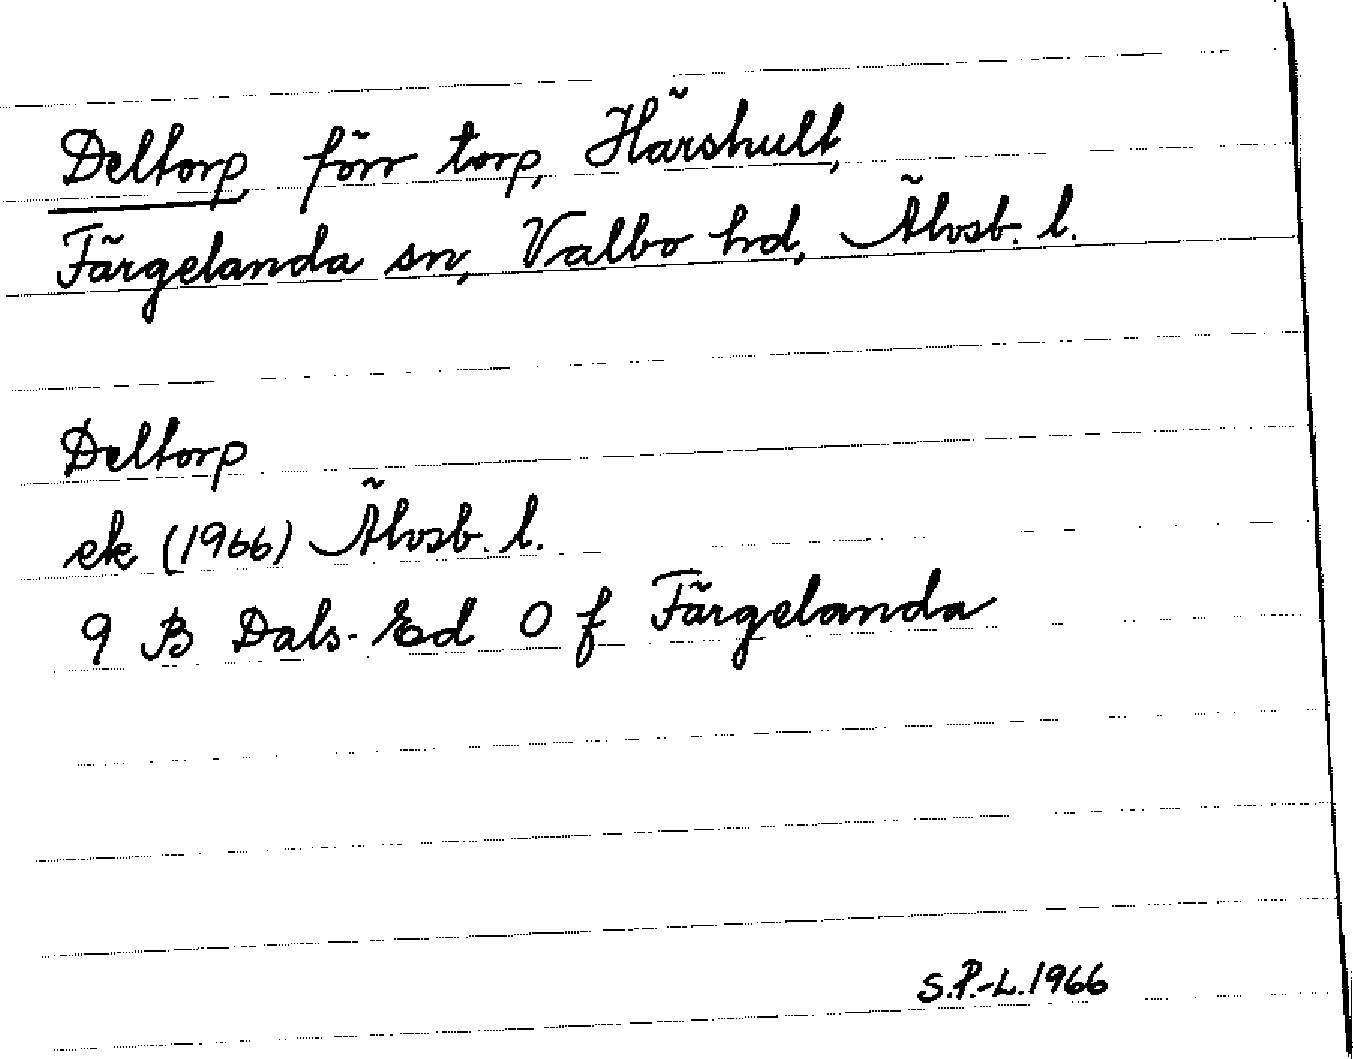 Deltorp, förr torp, Härshult,
Färgelanda sn, Valbo hd, Älvsb. l.
Deltorp
ek (1966) Älvsb. l.
9 B Dals-Ed 0 f Färgelanda
S.P.-L. 1966